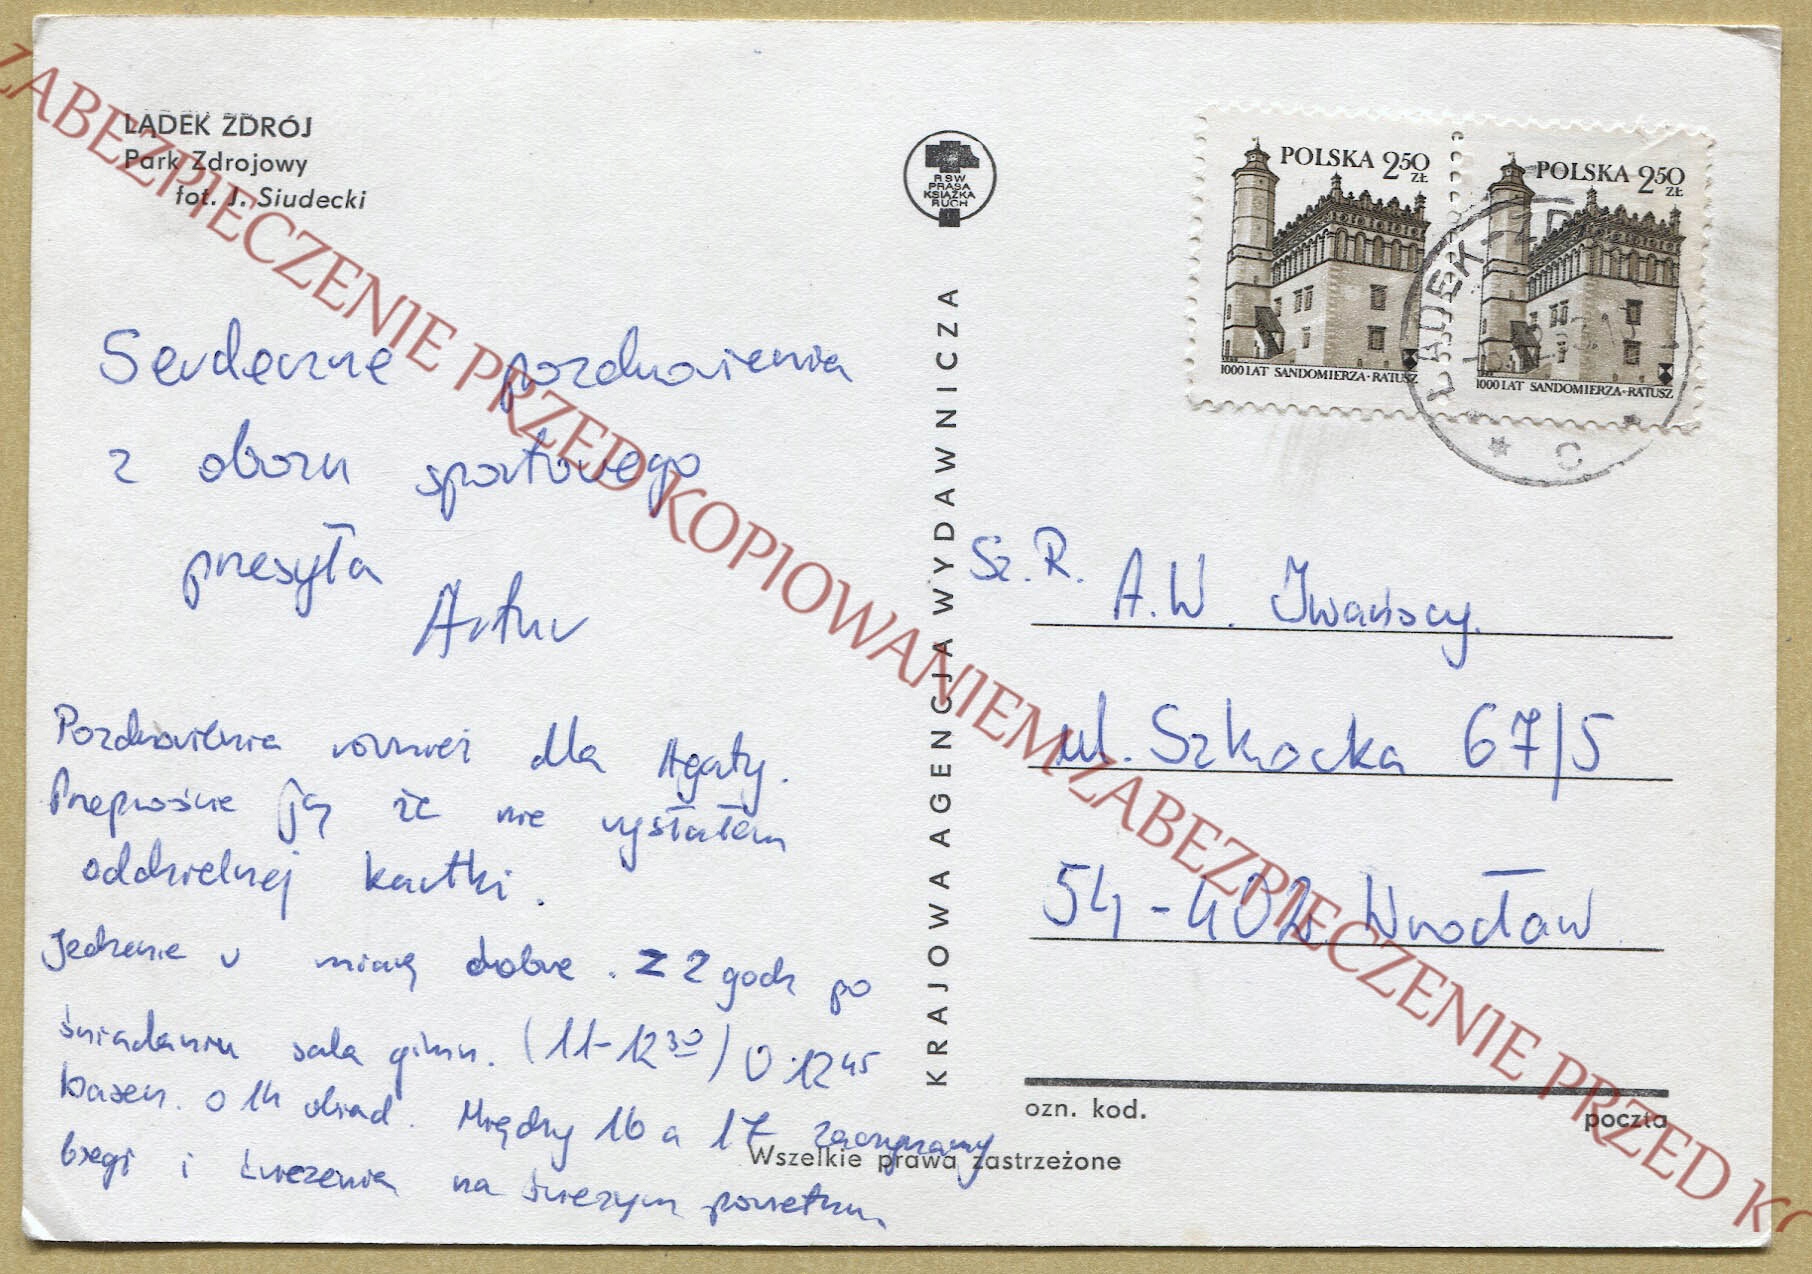 LĄDEK ZDRÓJ
Park Zdrojowy
fot. J. Siudecki
Serdeczne pozdrowienia
z obozu sportowego
przesyła
Artur
Pozdrowienia również dla Agaty.
Przeproście ją że nie wysłałem
oddzielnej kartki.
Jedzenie w miarę dobre. Z 2 godz po
śniadaniu sala gimn. (11-12 30) O 12 45
basen. O 14 obiad. Między 16 a 17 zaczynamy
biegi i ćwiczenia na świeżym powietrzu
RSW
PRASA
KSIĄŻKA
RUCH
KRAJOWA AGENCJA WYDAWNICZA
POLSKA 2 50 ZŁ
1000 LAT SANDOMIERZA-RATUSZ
POLSKA 2 50 ZŁ
1000 LAT SANDOMIERZA-RATUSZ
LĄDEK-ZD
C
Sz. P. A.W. Iwańscy.
ul. Szkocka 67/5
54-402 Wrocław
ozn. kod. poczta
Wszelkie prawa zastrzeżone
ZABEZPIECZENIE PRZED KOPIOWANIEM ZABEZPIECZENIE PRZED KO